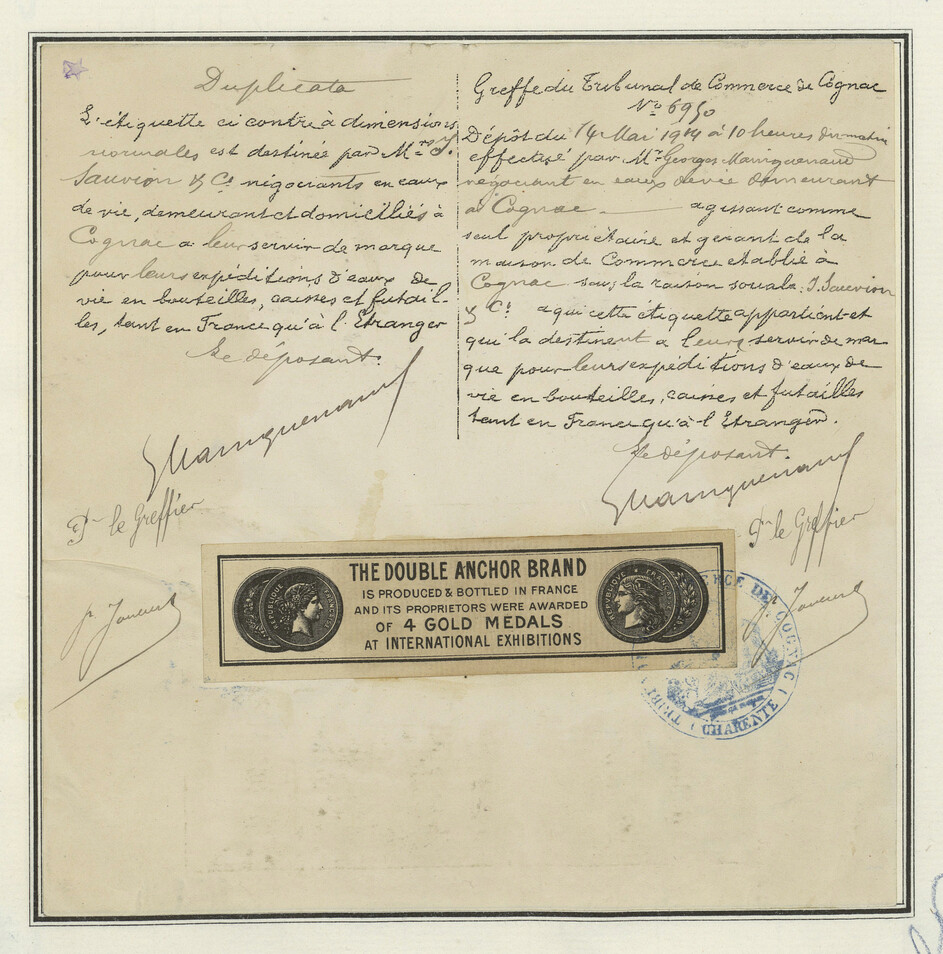 Duplicata
L'étiquette ci contre à dimensions
normales est destinée par Mrs J.
Sauvion & Cie négociants en eaux
de vie, demeurant et domiciliés à
Cognac a leur servir de marque
pour leurs expéditions d'eaux de
vie en bouteilles, caisses et futail-
les, tant en France qu'à l'Etranger
Le déposant.
GMainguenaud
Pr le Greffier
Greffe du Tribunal de Commerce de Cognac
No 6950
Dépôt du 14 Mai 1914 à 10 heures du matin
effectué par Mr Georges Mainguenaud
négociant en eaux de vie demeurant
à Cognac agissant comme
seul propriétaire et gérant de la
maison de Commerce etablie à
Cognac sous la raison sociale: J. Sauvion
& Cie a qui cette étiquette appartient et
qui la destinent a leur servir de mar
que pour leurs expéditions d'eaux de
vie en bouteilles, caisses et futailles
tant en France qu'à l'Etranger.
Le déposant.
GMainguenaud
Pr le Greffier
THE DOUBLE ANCHOR BRAND
IS PRODUCED & BOTTLED IN FRANCE
AND ITS PROPRIETORS WERE AWARDED
OF 4 GOLD MEDALS
AT INTERNATIONAL EXHIBITIONS
REPUBLIQUE FRANCAISE
REPUBLIQUE FRANCAISE
DE COGNAC
CHARENTE